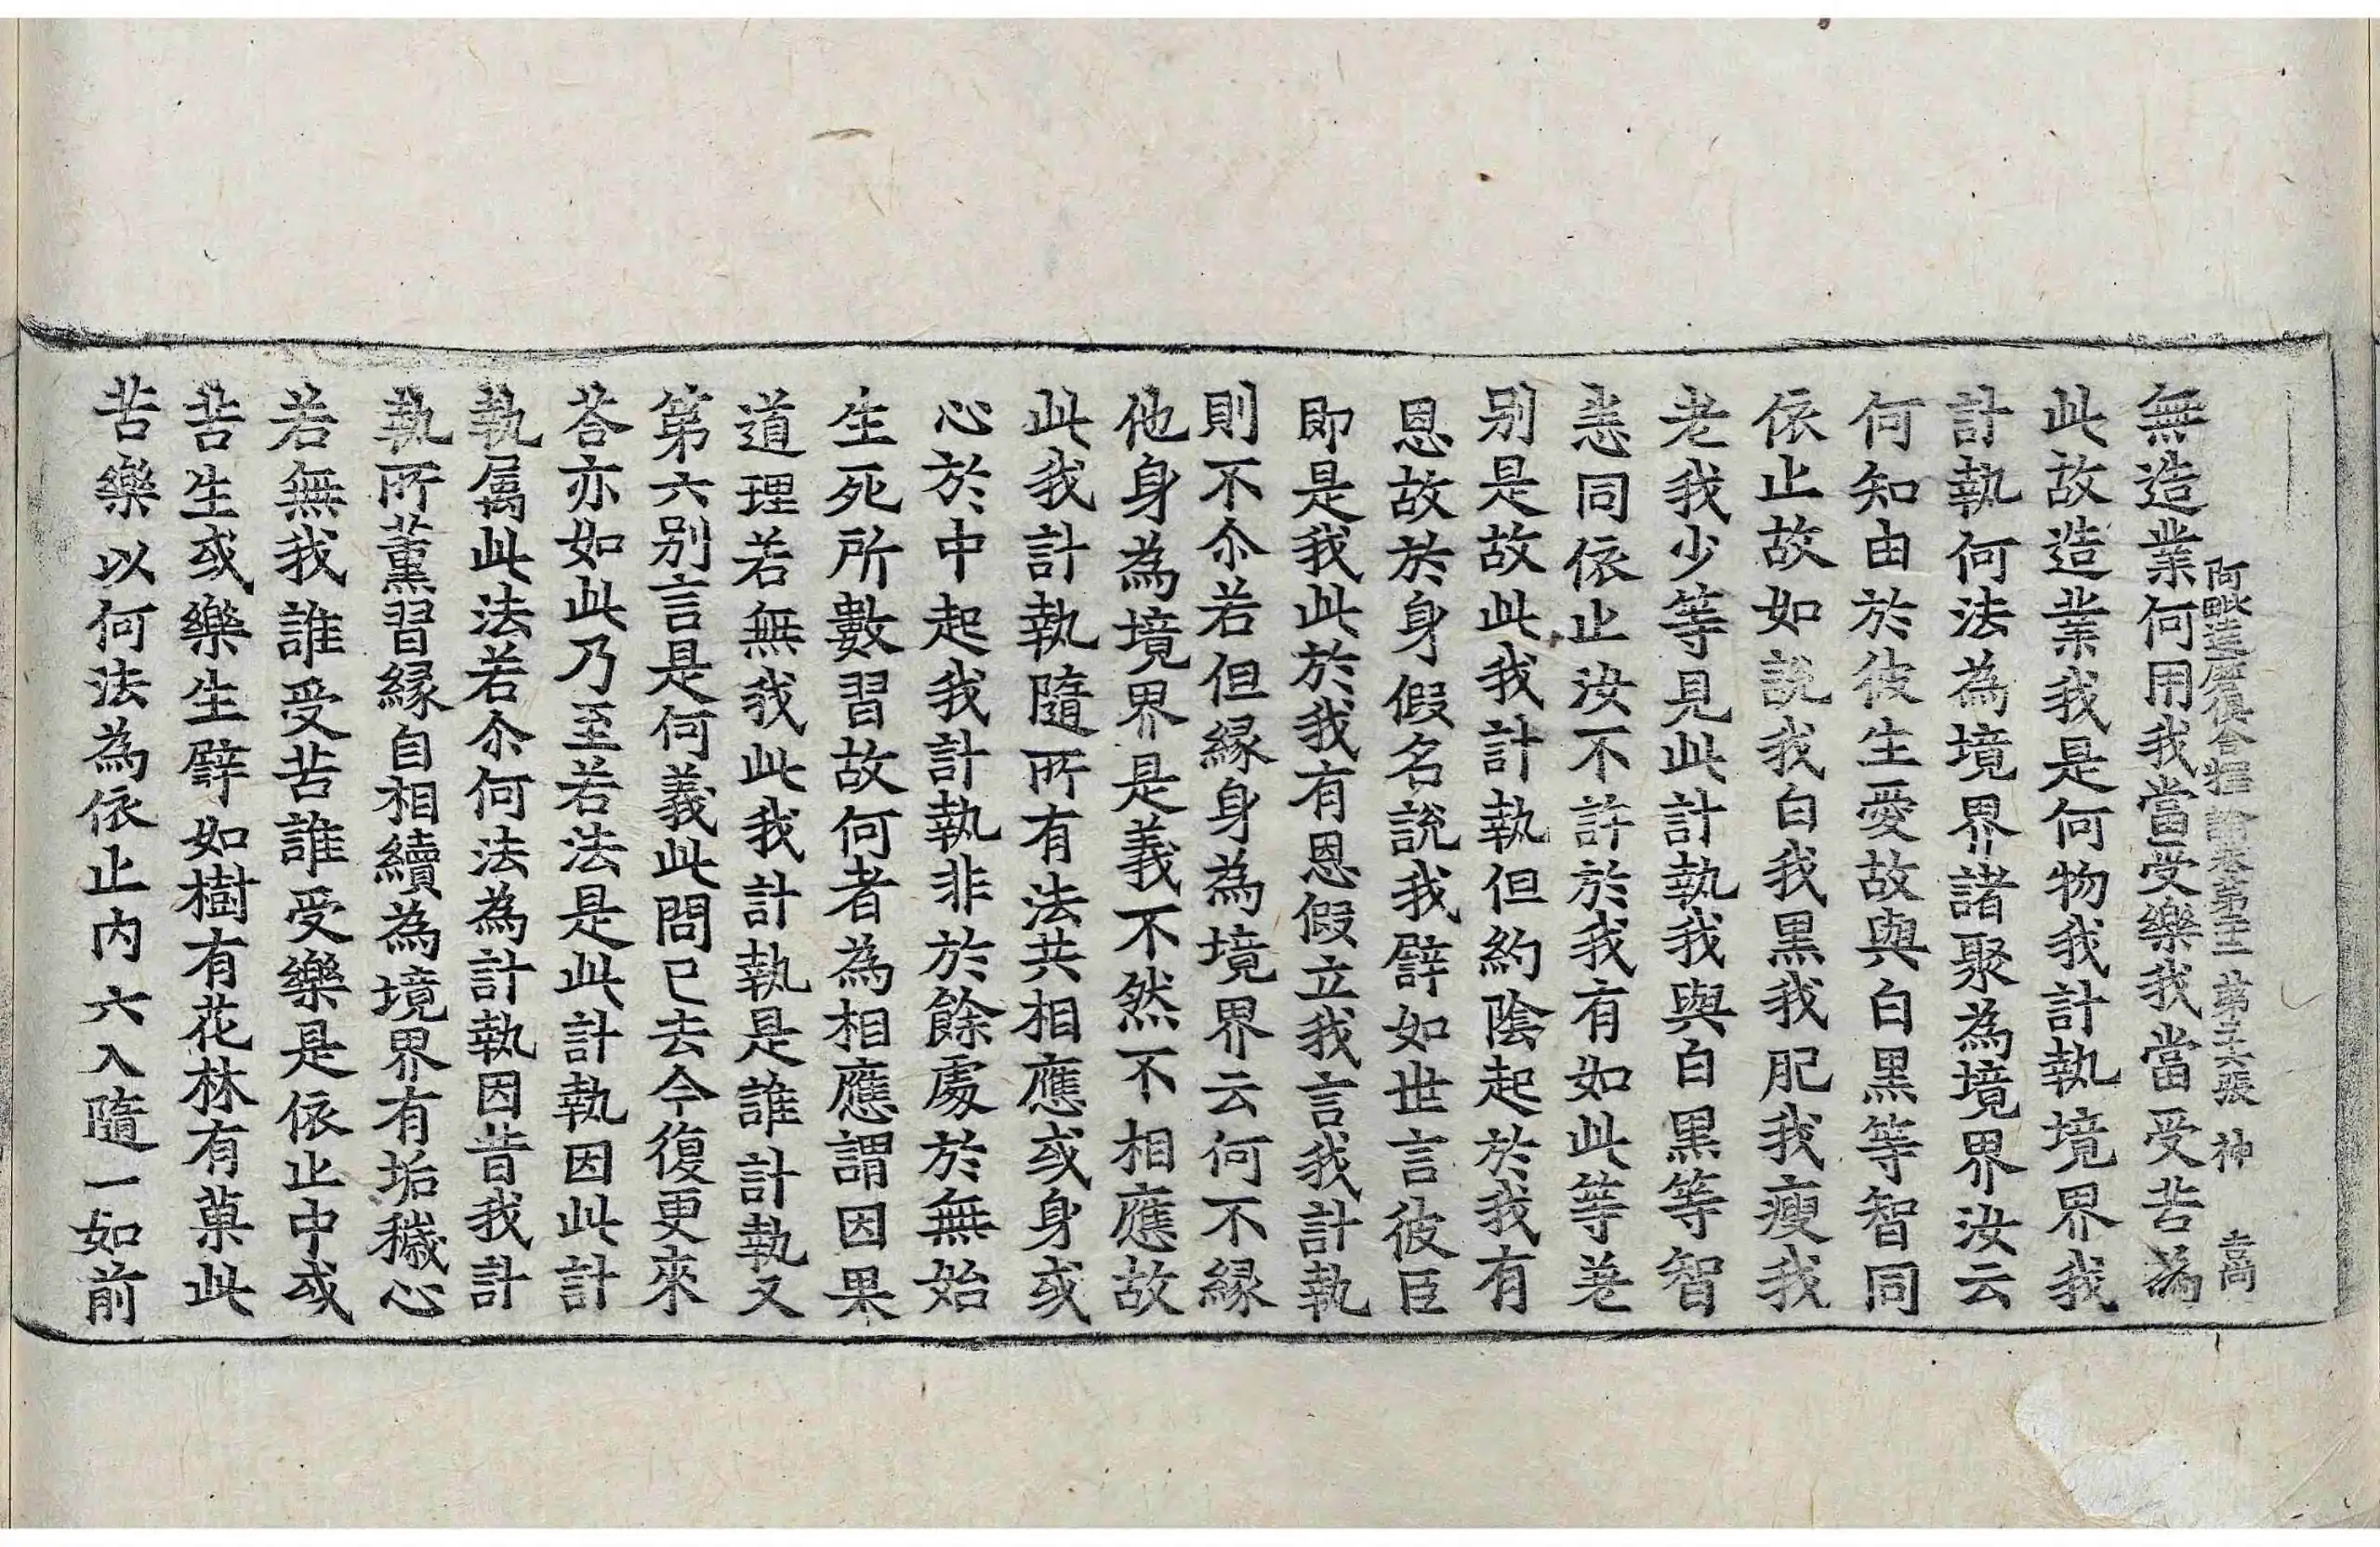 阿毗達磨俱舍釋論卷第二十二 第三六張 神
無造業何用我當受樂我當受苦為
此故造業我是何物我計執境界我
計執何法為境界諸聚為境界汝云
何知由於彼生愛故與白黑等智同
依止故如說我白我黑我肥我瘦我
老我少等見此計執我與白黑等智
恙同依止汝不許於我有如此等差
別是故此我計執但約陰起於我有
恩故於身假名說我譬如世言彼臣
即是我此於我有恩假立我言我計執
則不尒若但緣身為境界云何不緣
他身為境界是義不然不相應故
此我計執隨所有法共相應或身或
心於中起我計執非於餘處於無始
生死所數習故何者為相應謂因果
道理若無我此我計執是誰計執又
第六別言是何義此問已去今復更來
荅亦如此乃至若法是此計執因此計
執屬此法若尒何法為計執因昔我計
執所薰習緣自相續為境界有垢穢心
若無我誰受苦誰受樂是依止中或
苦生或樂生譬如樹有花林有菓此
苦樂以何法為依止內六入隨一如前